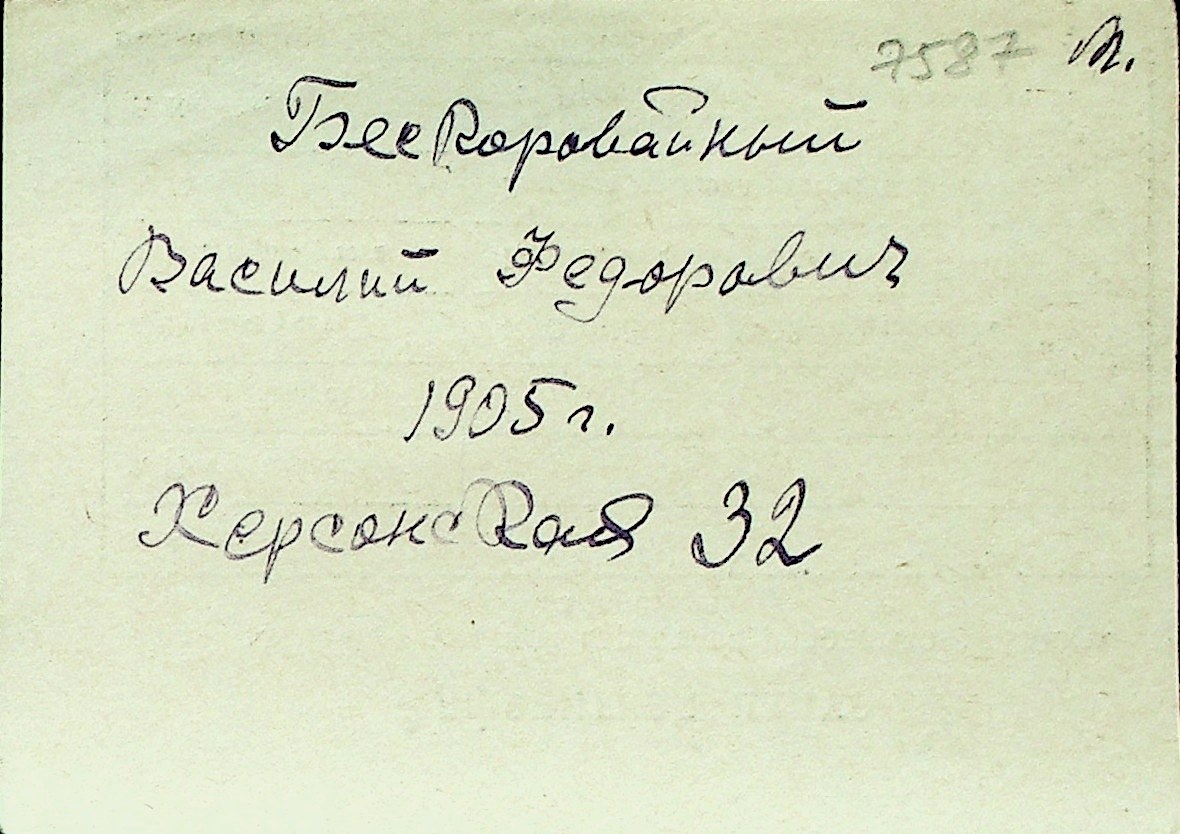 7587 М.
Бескоровайный
Василий Федорович
1905 г.
Херсонская 32